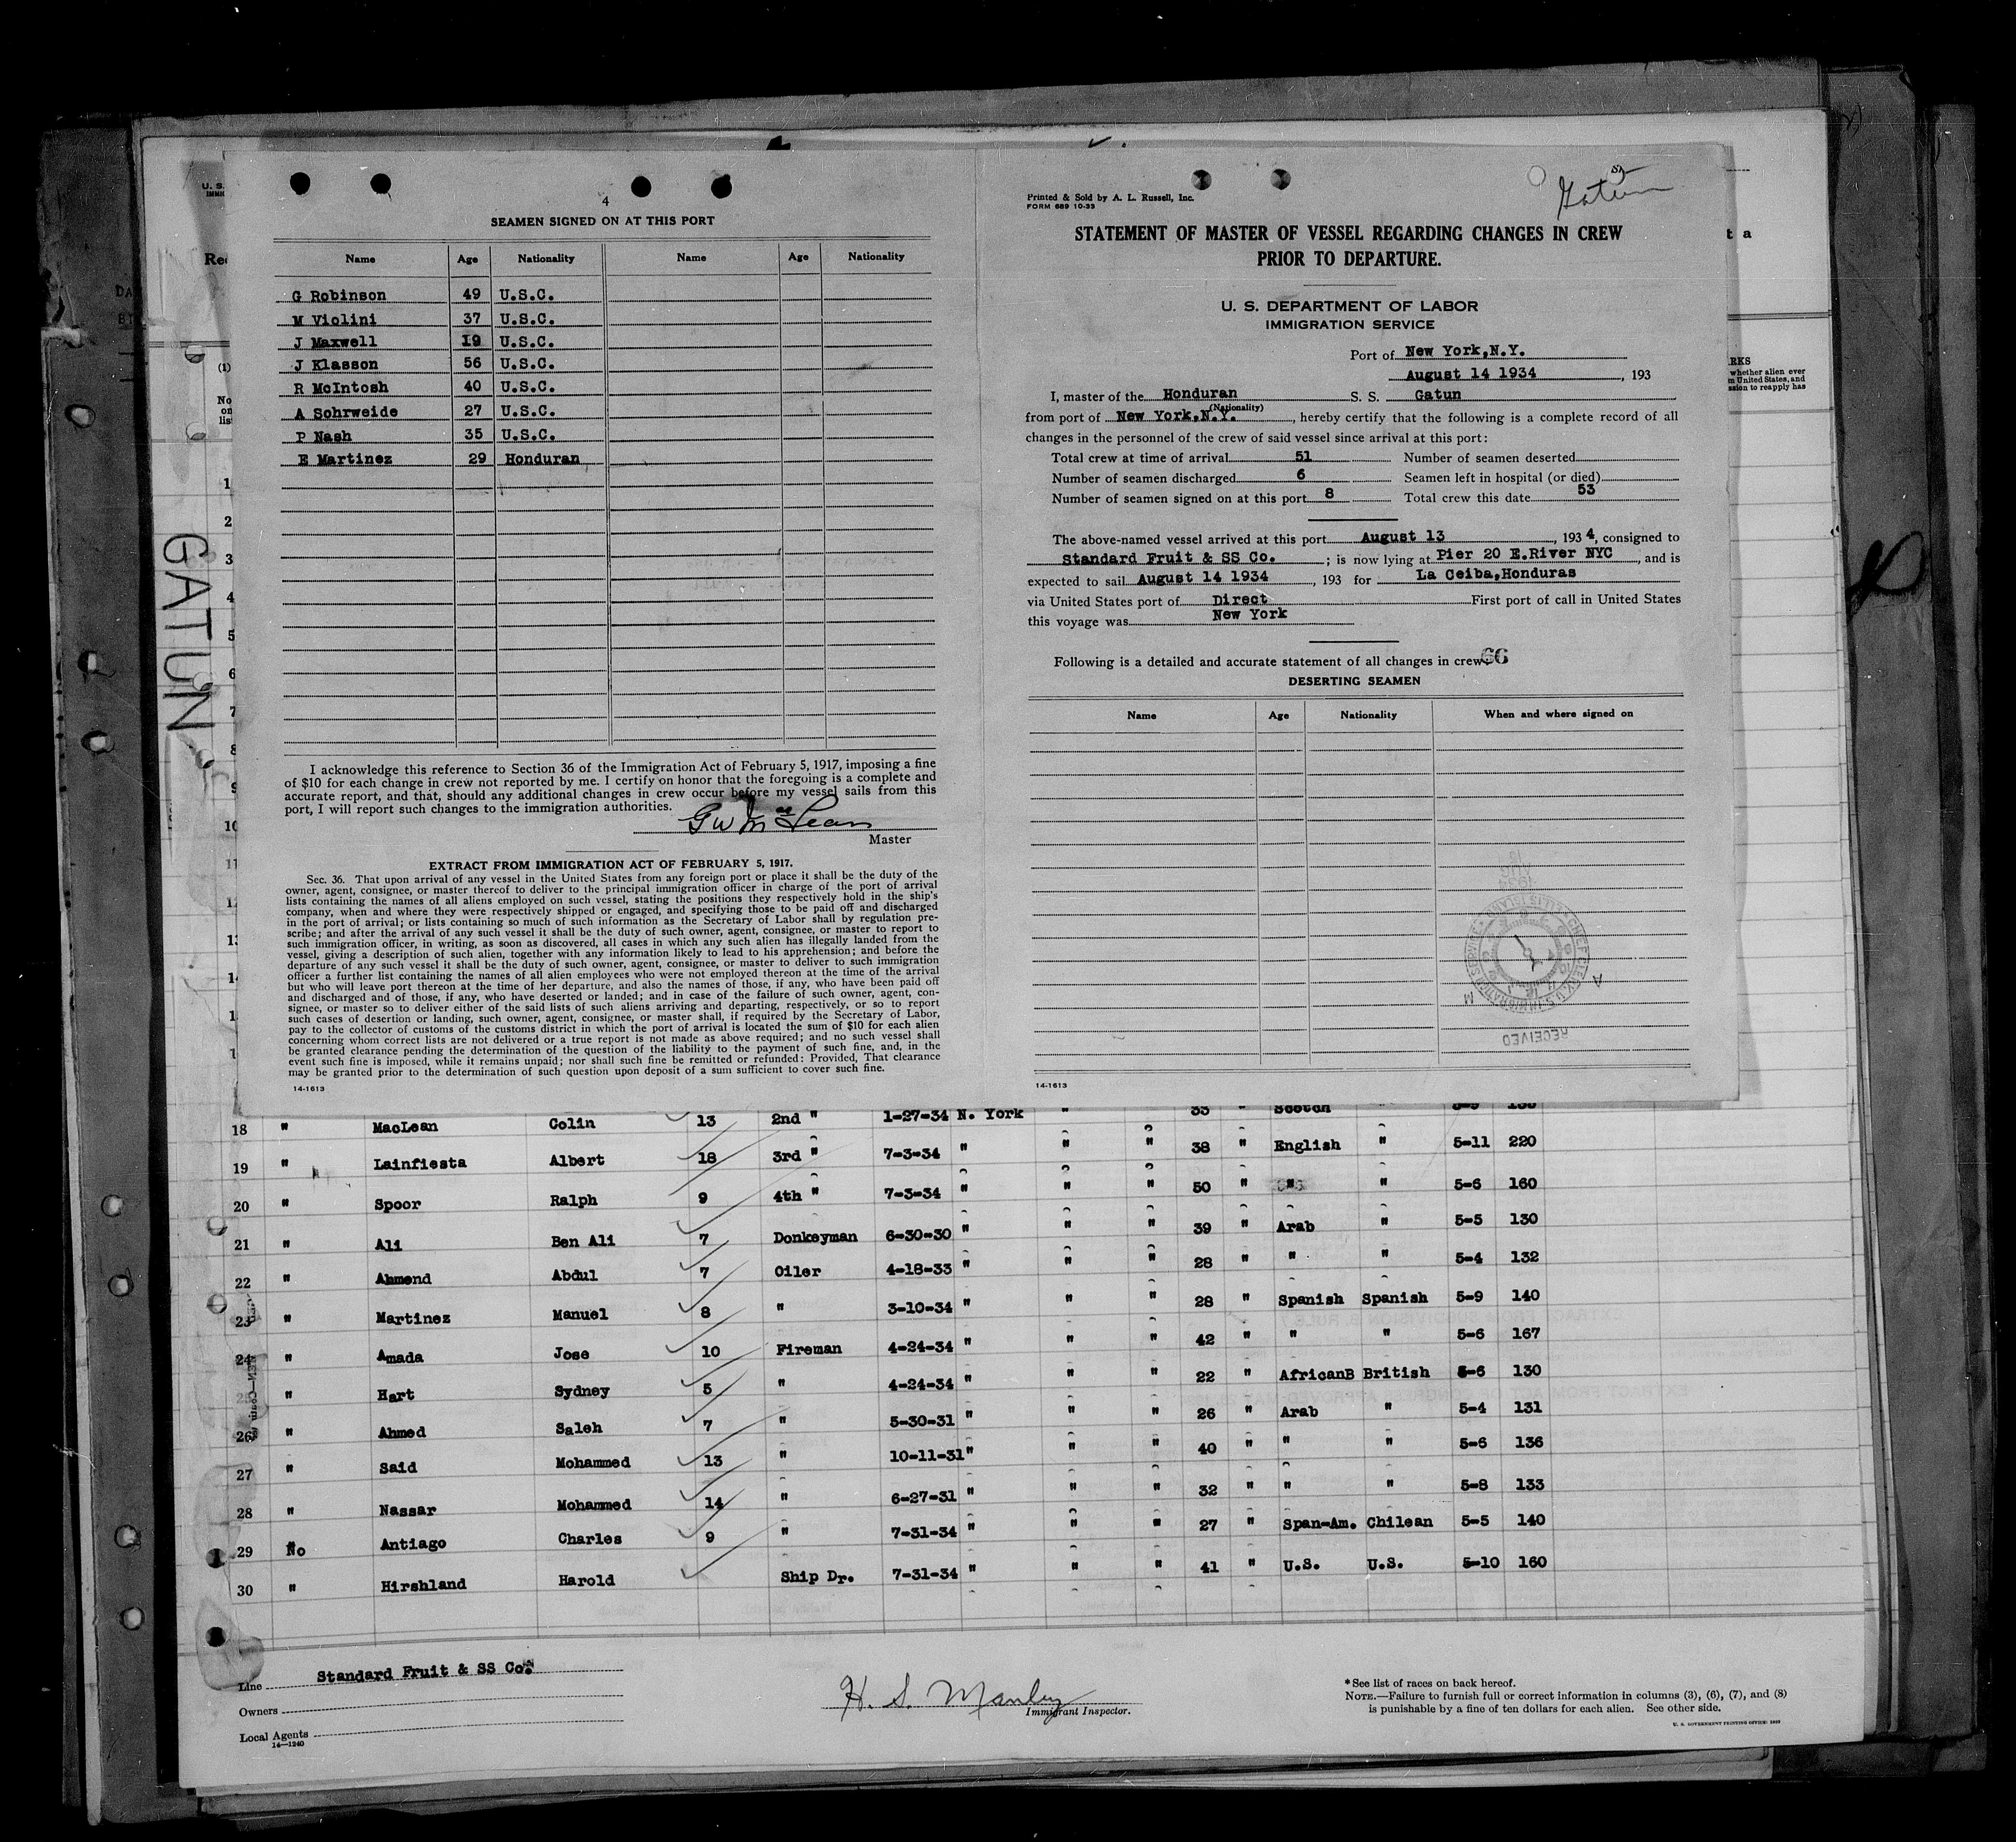 4
SEAMEN SIGNED ON AT THIS PORT
Name Age Nationality Name Age Nationality
G Robinson 49 U.S.C.
M Violini 37 U.S.C.
J Maxwell 19 U.S.C.
J Klasson 56 U.S.C.
R McIntosh 40 U.S.C.
A Sohrweide 27 U.S.C.
P Nash 35 U.S.C.
E Martinez 29 Honduran
I acknowledge this reference to Section 36 of the Immigration Act of February 5, 1917, imposing a fine
of $10 for each change in crew not reported by me. I certify on honor that the foregoing is a complete and
accurate report, and that, should any additional changes in crew occur before my vessel sails from this
port, I will report such changes to the immigration authorities.
G W McLean
Master
EXTRACT FROM IMMIGRATION ACT OF FEBRUARY 5, 1917.
Sec. 36. That upon arrival of any vessel in the United States from any foreign port or place it shall be the duty of the
owner, agent, consignee, or master thereof to deliver to the principal immigration officer in charge of the port of arrival
lists containing the names of all aliens employed on such vessel, stating the positions they respectively hold in the ship's
company, when and where they were respectively shipped or engaged, and specifying those to be paid off and discharged
in the port of arrival; or lists containing so much of such information as the Secretary of Labor shall by regulation pre-
scribe; and after the arrival of any such vessel it shall be the duty of such owner, agent, consignee, or master to report to
such immigration officer, in writing, as soon as discovered, all cases in which any such alien has illegally landed from the
vessel, giving a description of such alien, together with any information likely to lead to his apprehension; and before the
departure of any such vessel it shall be the duty of such owner, agent, consignee, or master to deliver to such immigration
officer a further list containing the names of all alien employees who were not employed thereon at the time of the arrival
but who will leave port thereon at the time of her departure, and also the names of those, if any, who have been paid off
and discharged and of those, if any, who have deserted or landed; and in case of the failure of such owner, agent, con-
signee, or master so to deliver either of the said lists of such aliens arriving and departing, respectively, or so to report
such cases of desertion or landing, such owner, agent, consignee, or master shall, if required by the Secretary of Labor,
pay to the collector of customs of the customs district in which the port of arrival is located the sum of $10 for each alien
concerning whom correct lists are not delivered or a true report is not made as above required; and no such vessel shall
be granted clearance pending the determination of the question of the liability to the payment of such fine, and, in the
event such fine is imposed, while it remains unpaid; nor shall such fine be remitted or refunded: Provided, That clearance
may be granted prior to the determination of such question upon deposit of a sum sufficient to cover such fine.
14-1613
Printed & Sold by A. L. Russell, Inc.
FORM 689 10-33
Gatun
STATEMENT OF MASTER OF VESSEL REGARDING CHANGES IN CREW
PRIOR TO DEPARTURE.
U. S. DEPARTMENT OF LABOR
IMMIGRATION SERVICE
Port of New York,N.Y.
August 14 1934, 193
I, master of the Honduran S. S. Gatun
(Nationality)
from port of New York,N.Y., hereby certify that the following is a complete record of all
changes in the personnel of the crew of said vessel since arrival at this port:
Total crew at time of arrival 51 Number of seamen deserted
Number of seamen discharged 6 Seamen left in hospital (or died)
Number of seamen signed on at this port 8 Total crew this date 53
The above-named vessel arrived at this port August 13, 1934, consigned to
Standard Fruit & SS Co. ; is now lying at Pier 20 E.River NYC, and is
expected to sail August 14 1934, 193 for La Ceiba,Honduras
via United States port of Direct First port of call in United States
this voyage was New York
Following is a detailed and accurate statement of all changes in crew: 66
DESERTING SEAMEN
Name Age Nationality When and where signed on
RECEIVED
14-1613
GATUN
18 " MacLean Colin 13 2nd " 1-27-34 N. York " " 33 " Scotch "
19 " Lainfiesta Albert 18 3rd " 7-3-34 " " " 38 " English " 5-11 220
20 " Spoor Ralph 9 4th " 7-3-34 " " " 50 " " " 5-6 160
21 " Ali Ben Ali 7 Donkeyman 6-30-30 " " " 39 " Arab " 5-5 130
22 " Ahmend Abdul 7 Oiler 4-18-33 " " " 28 " " " 5-4 132
23 " Martinez Manuel 8 " 3-10-34 " " " 28 " Spanish Spanish 5-9 140
24 " Amada Jose 10 Fireman 4-24-34 " " " 42 " " " 5-6 167
25 " Hart Sydney 5 " 4-24-34 " " " 22 " AfricanB British 5-6 130
26 " Ahmed Saleh 7 " 5-30-31 " " " 26 " Arab " 5-4 131
27 " Said Mohammed 13 " 10-11-31 " " " 40 " " " 5-6 136
28 " Nassar Mohammed 14 " 6-27-31 " " " 32 " " " 5-8 133
29 No Antiago Charles 9 " 7-31-34 " " " 27 " Span-Am. Chilean 5-5 140
30 " Hirshland Harold Ship Dr. 7-31-34 " " " 41 " U.S. U.S. 5-10 160
Line Standard Fruit & SS Co.
Owners
Local Agents
14-1240
H. S. Manley
Immigrant Inspector.
*See list of races on back hereof.
NOTE.—Failure to furnish full or correct information in columns (3), (6), (7), and (8)
is punishable by a fine of ten dollars for each alien. See other side.
U. S. GOVERNMENT PRINTING OFFICE: 1933